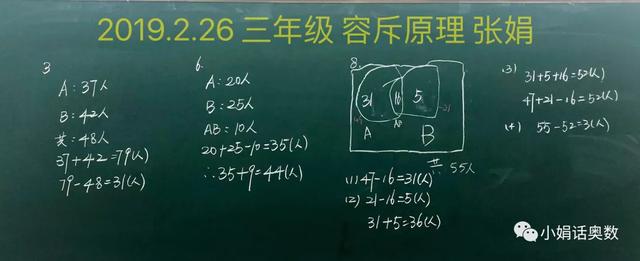 2019.2.26 三年级 容斥原理 张娟
3
A:37人
B:42人
共:48人
37+42=79(人)
79-48=31(人)
6.
A:20人
B:25人
AB:10人
20+25-10=35(人)
∴35+9=44(人)
8.
31
16
5
47
21
A
AB
B
共55人
(1)47-16=31(人)
(2)21-16=5(人)
31+5=36(人)
(3)
31+5+16=52(人)
47+21-16=52(人)
(4) 55-52=3(人)
小娟话奥数